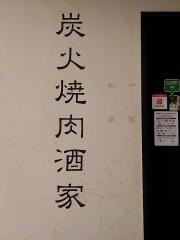 炭火焼肉酒家